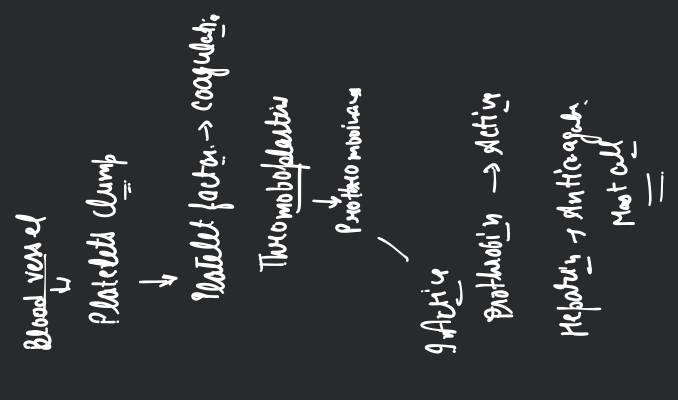 Blood vessel
↓
Platelets clump
↓
Platelet factor → coagulati.
Thromboplastin
↓
Prothrombinase
InActive
Prothrobin → Active
Heparin → Anticoagula.
Mast cell